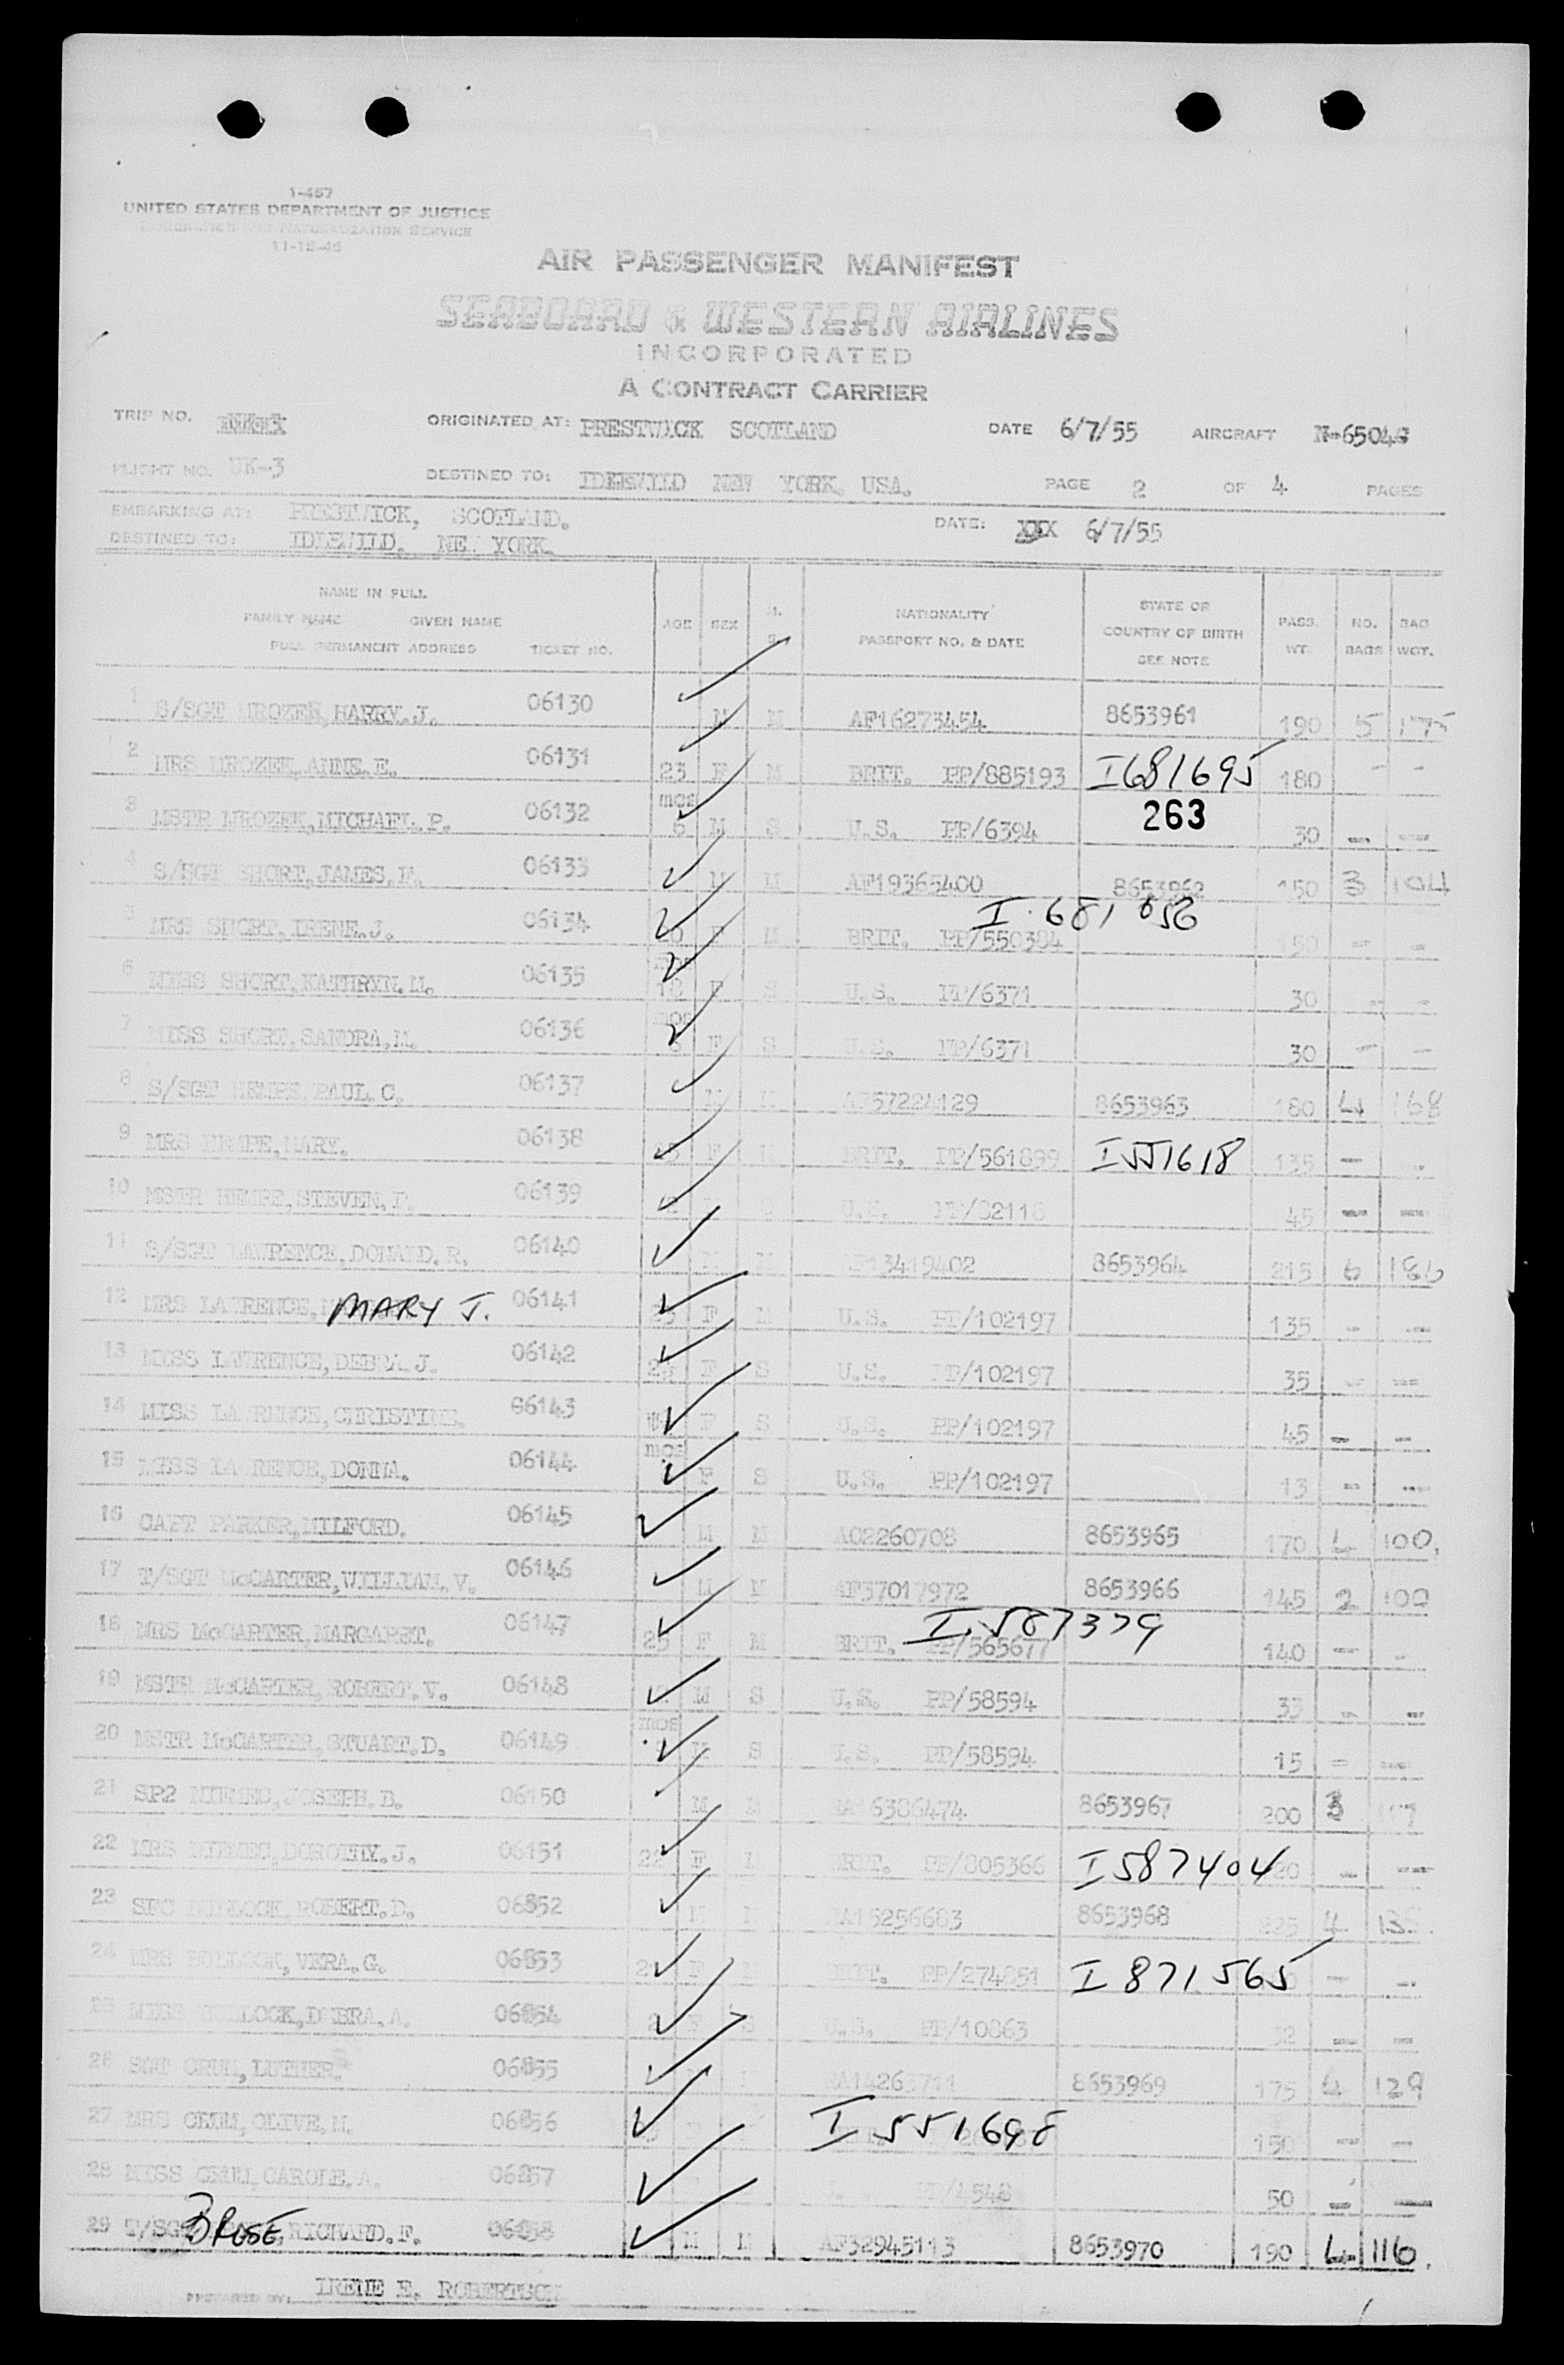 1-457
UNITED STATES DEPARTMENT OF JUSTICE
IMMIGRATION AND NATURALIZATION SERVICE
11-15-45
AIR PASSENGER MANIFEST
SEABOARD & WESTERN AIRLINES
INCORPORATED
A CONTRACT CARRIER
TRIP NO. ORIGINATED AT: PRESTWICK SCOTLAND DATE 6/7/55 AIRCRAFT N-6504
FLIGHT NO. UK-3 DESTINED TO: IDLEWILD NEW YORK, USA. PAGE 2 OF 4 PAGES
EMBARKING AT: PRESTWICK, SCOTLAND. DATE: XXX 6/7/55
DESTINED TO: IDLEWILD. NEW YORK.
NAME IN FULL
FAMILY NAME GIVEN NAME
FULL PERMANENT ADDRESS TICKET NO. AGE SEX M. S. NATIONALITY PASSPORT NO. & DATE STATE OR COUNTRY OF BIRTH SEE NOTE PASS. WT. NO. BAGS BAG WGT.
1 S/SGT MROZEK,HARRY.J. 06130 M M AF16273454 8653961 190 5 175
2 MRS MROZEK,ANNE.E. 06131 23 F M BRIT. PP/885193 I681695 180 - -
3 MSTR MROZEK,MICHAEL.P. 06132 mos 6 M S U.S. PP/6394 263 30 - -
4 S/SGT SHORT,JAMES.F. 06133 M M AF19365400 8653962 150 3 104
5 MRS SHORT,IRENE.J. 06134 20 F M BRIT. PP/550384 I.681 056 150 - -
6 MISS SHORT,KATHRYN.M. 06135 mos 18 F S U.S. PP/6371 30 - -
7 MISS SHORT,SANDRA.M. 06136 mos F S U.S. PP/6371 30 - -
8 S/SGT HEMPE,PAUL.C. 06137 M M AF57224129 8653963 180 4 168
9 MRS HEMPE,MARY. 06138 F M BRIT. PP/561899 I551618 135 - -
10 MSTR HEMPE,STEVEN.P. 06139 S U.S. PP/82118 45 - -
11 S/SGT LAWRENCE,DONALD.R. 06140 M M AF13419402 8653964 215 6 186
12 MRS LAWRENCE, MARY J. 06141 25 F M U.S. PP/102197 135 - -
13 MISS LAWRENCE,DEBRA.J. 06142 F S U.S. PP/102197 35 - -
14 MISS LAWRENCE,CHRISTINE. 06143 F S U.S. PP/102197 45 - -
15 MISS LAWRENCE,DONNA. 06144 mos F S U.S. PP/102197 13 - -
16 CAPT PARKER,MILFORD. 06145 M M AO2260708 8653965 170 4 100.
17 T/SGT McCARTER,WILLIAM.V. 06146 M M AF37017972 8653966 145 2 100
18 MRS McCARTER,MARGARET. 06147 25 F M BRIT. PP/565677 I.587379 140 - -
19 MSTR McCARTER,ROBERT.V. 06148 M S U.S. PP/58594 33 - -
20 MSTR McCARTER,STUART.D. 06149 mos M S U.S. PP/58594 15 - -
21 SP2 NIEMEC,JOSEPH.B. 06150 M M RA16386474 8653967 200 3
22 MRS NIEMEC,DOROTHY.J. 06151 22 F M BRIT. PP/805366 I587404 - -
23 SFC BULLOCK,ROBERT.D. 06852 M M RA15256683 8653968 4
24 MRS BULLOCK,VERA.G. 06853 F M BRIT. PP/274851 I871565 - -
25 MISS BULLOCK,DEBRA.A. 06854 2 F S U.S. PP/10863 32 - -
26 SGT CRUM,LUTHER. 06855 RA14263711 8653969 175 4 129
27 MRS CRUM,OLIVE.M. 06856 I551698 150 - -
28 MISS CRUM,CAROLE.A. 06857 PP/4548 50 - -
29 T/SGT BROSE, RICHARD.F. 06858 M M AF32945113 8653970 190 4 116.
PREPARED BY: IRENE E. ROBERTSON